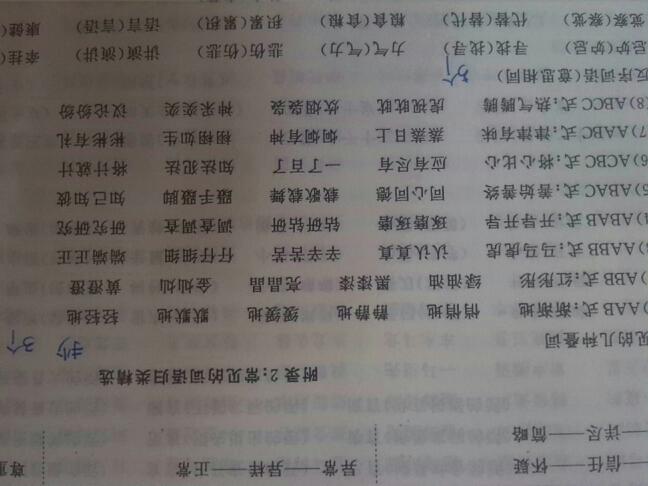 ——信任——怀疑 异常——异样——正常 尊重
——详尽——简略
附录2:常见的词语归类精选
见的几种叠词 抄3个
)AAB式:渐渐地 悄悄地 静静地 缓缓地 默默地 轻轻地
)ABB式:红彤彤 绿油油 黑漆漆 亮晶晶 金灿灿 黄澄澄
3)AABB式:马马虎虎 认认真真 辛辛苦苦 仔仔细细 端端正正
4)ABAB式:开导开导 琢磨琢磨 钻研钻研 调查调查 研究研究
5)ABAC式:善始善终 同心同德 载歌载舞 蹑手蹑脚 知己知彼
6)ACBC式:将心比心 应有尽有 一了百了 知法犯法 将计就计
7)AABC式:津津有味 蒸蒸日上 炯炯有神 栩栩如生 彬彬有礼
(8)ABCC式:热气腾腾 虎视眈眈 炊烟袅袅 神采奕奕 议论纷纷
反序词语(意思相同)
忌妒(妒忌) 寻找(找寻) 力气(气力) 悲伤(伤悲) 讲演(演讲) 牵挂
觉察(察觉) 代替(替代) 粮食(食粮) 积累(累积) 语言(言语) 康健(